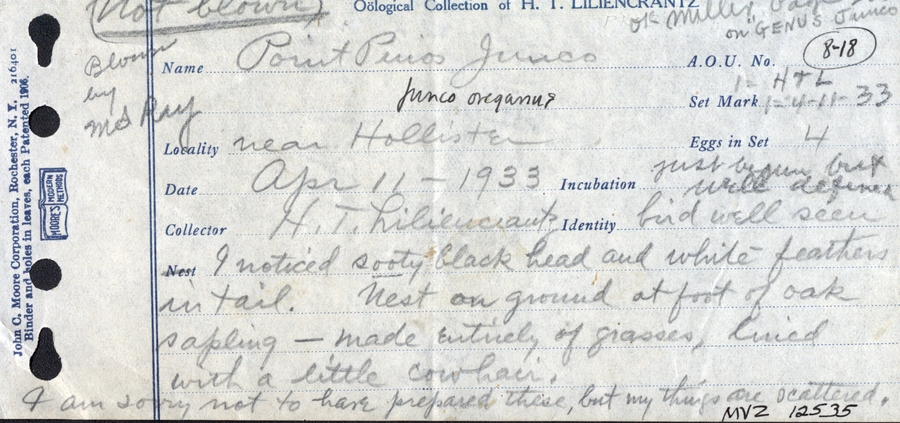 (Not blown)
Oölogical Collection of H. T. LILIENCRANTZ
of Miller
on "GENUS Junco
Blown
by
McRay
Name Point Pinos Junco
A.O.U. No. 8-18
Junco oreganus
1= HTL
Set Mark 1-4-11-33
Locality near Hollister
Eggs in Set 4
Date Apr 11-1933
Incubation just begun but
well defined
Collector H. T. Liliencrantz
Identity bird well seen
Nest I noticed sooty black head and white feathers
in tail. Nest on ground at foot of oak
sapling — made entirely of grasses, lined
with a little cowhair.
I am sorry not to have prepared these, but my things are scattered.
MVZ 12535
John C. Moore Corporation, Rochester, N. Y. 216401
Binder and holes in leaves, each Patented 1906.
MOORE'S MODERN METHODS